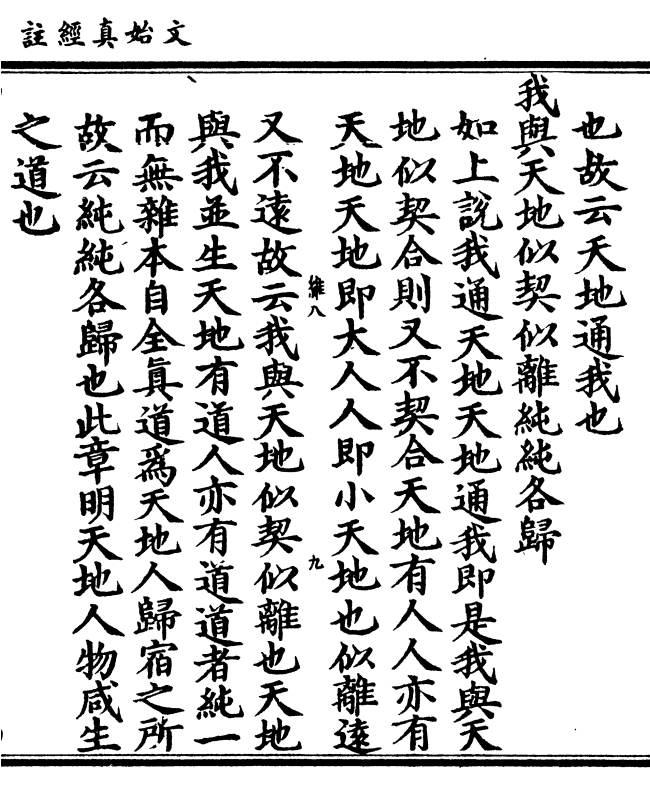 文始真經註
也故云天地通我也
我與天地似契似離純純各歸
如上說我通天地天地通我即是我與天
地似契合則又不契合天地有人人亦有
天地天地即大人人即小天地也似離遠
維八
九
又不遠故云我與天地似契似離也天地
與我並生天地有道人亦有道道者純一
而無雜本自全眞道爲天地人歸宿之所
故云純純各歸也此章明天地人物咸生
之道也